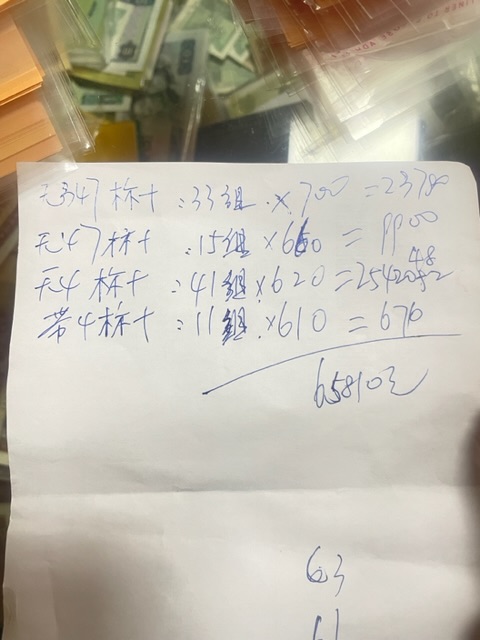 无347标十:33组×700=23700
无47标十:15组×660=9900
无4标十:41组×620=25420
48
带4标十:11组×610=6710
65810元
63
61